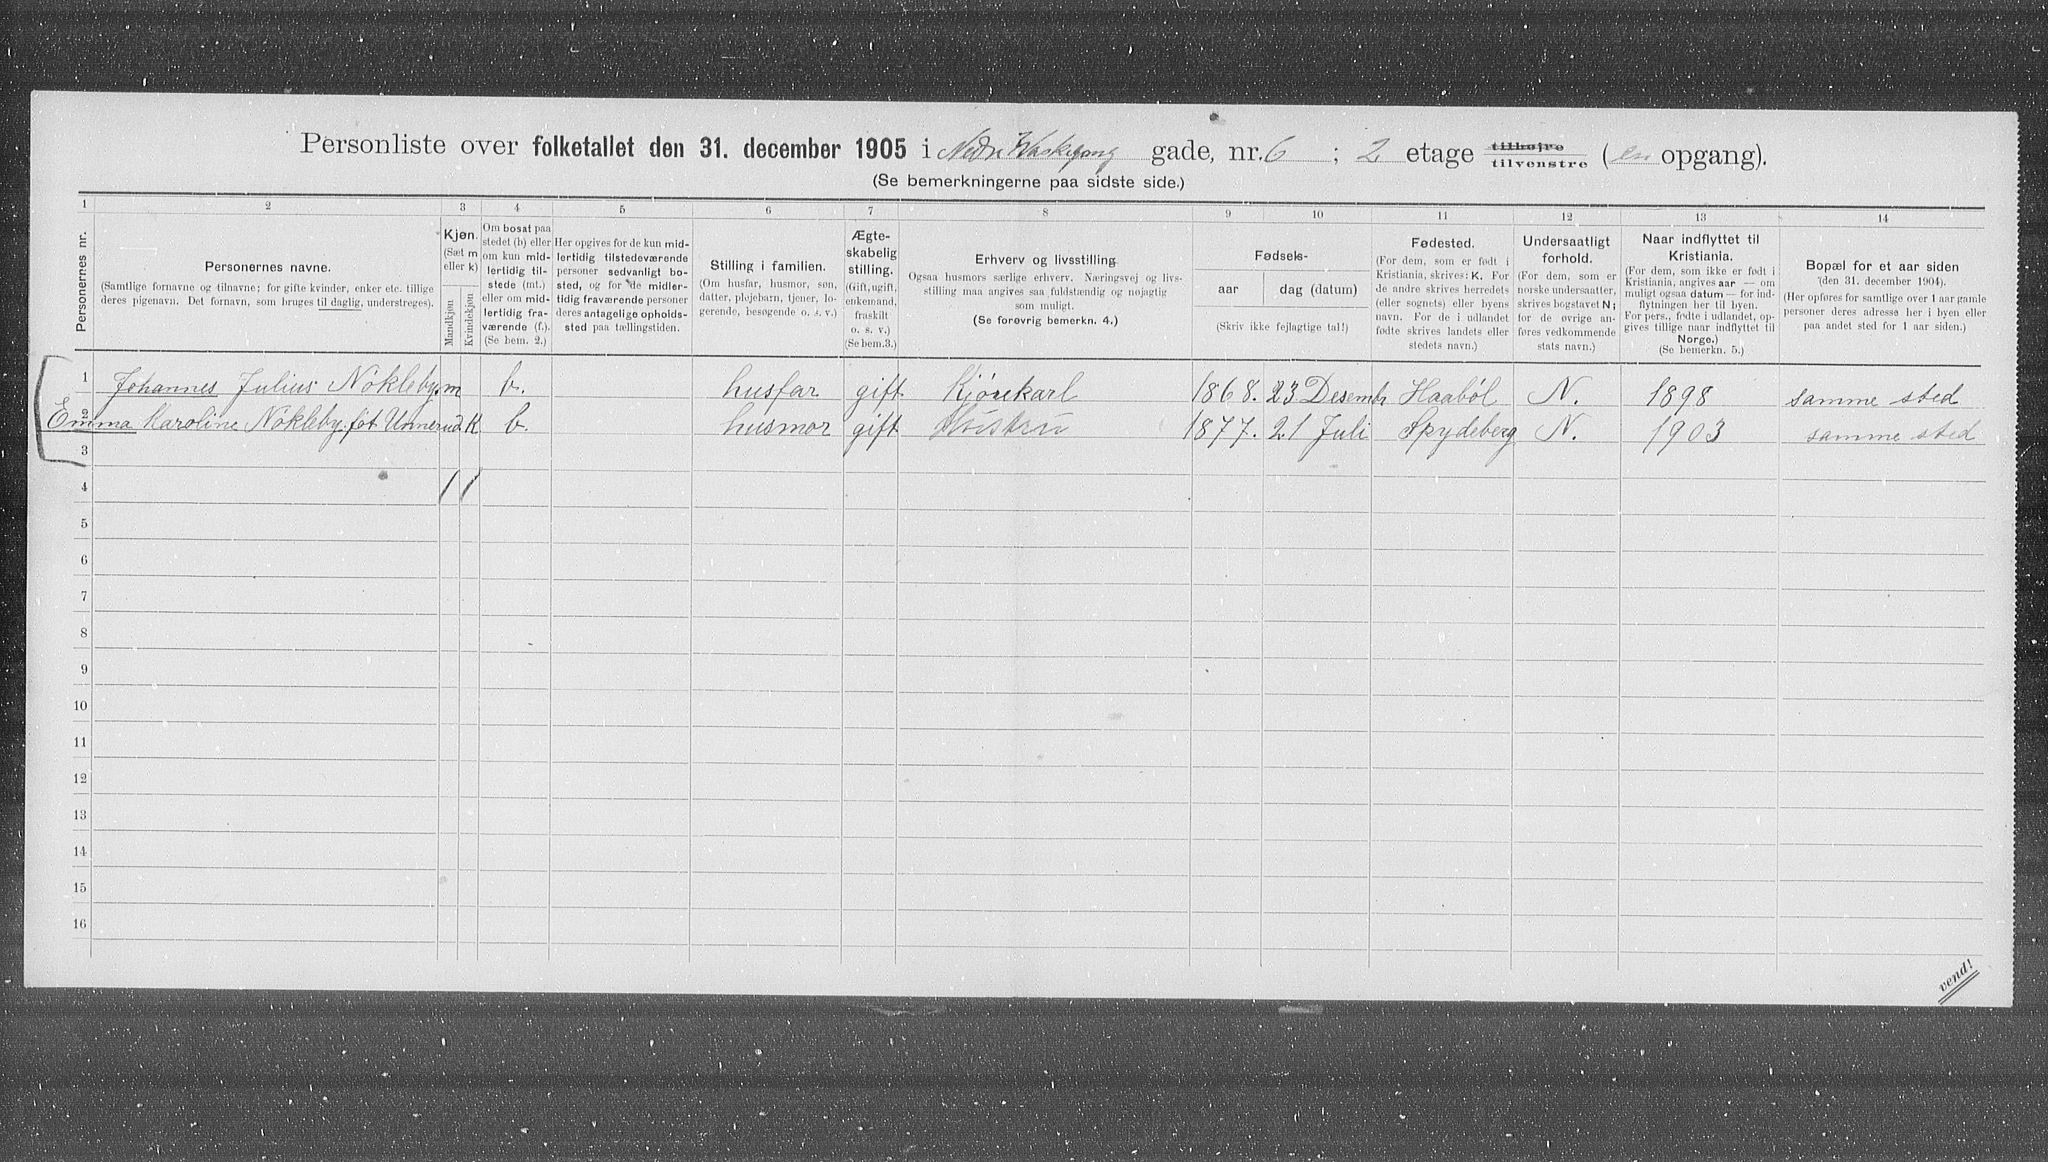 Personliste over folketallet den 31. december 1905 i Nedre Vaskegang gade, nr. 6 ; 2 etage tilhøjre tilvenstre (en opgang).
(Se bemerkningerne paa sidste side.)
1 2 3 4 5 6 7 8 9 10 11 12 13 14
Personernes nr.
Personernes navne.
(Samtlige fornavne og tilnavne; for gifte kvinder, enker etc. tillige
deres pigenavn. Det fornavn, som bruges til daglig, understreges).
Kjøn.
(Sæt m
eller k)
Mandkjøn
Kvindekjøn
Om bosat paa
stedet (b) eller
om kun mid-
lertidig til-
stede (mt.)
eller om mid-
lertidig fra-
værende (f.).
(Se bem. 2.)
Her opgives for de kun mid-
lertidig tilstedeværende
personer sedvanligt bo-
sted, og for de midler-
tidig fraværende personer
deres antagelige opholds-
sted paa tællingstiden.
Stilling i familien.
(Om husfar, husmor, søn,
datter, plejebarn, tjener, lo-
gerende, besøgende o. s. v.)
Ægte-
skabelig
stilling.
(Gift, ugift,
enkemand,
fraskilt
o. s. v.)
(Se bem.3.)
Erhverv og livsstilling
Ogsaa husmors særlige erhverv. Næringsvej og livs-
stilling maa angives saa fuldstændig og nøjagtig
som muligt.
(Se forøvrig bemerkn. 4.)
Fødsels-
aar
dag (datum)
(Skriv ikke fejlagtige tal!)
Fødested.
(For dem, som er født i
Kristiania, skrives: K. For
de andre skrives herredets
(eller sognets) eller byens
navn. For de i udlandet
fødte skrives landets eller
stedets navn.)
Undersaatligt
forhold.
(For dem, som er
norske undersaatter,
skrives bogstavet N;
for de øvrige an-
føres vedkommende
stats navn.)
Naar indflyttet til
Kristiania.
(For dem, som ikke er født i
Kristiania, angives aar — om
muligt ogsaa datum — for ind-
flytningen her til byen.
For pers., fødte i udlandet, op-
gives tillige naar indflyttet til
Norge.)
(Se bemerkn. 5.)
Bopæl for et aar siden
(den 31. december 1904).
(Her opføres for samtlige over 1 aar gamle
personer deres adresse her i byen eller
paa andet sted for 1 aar siden.)
1 Johannes Julius Nökleby. m b. husfar gift Kjørekarl 1868. 23 Desembr Haaböl N. 1898 samme sted
2 Emma Karoline Nökleby. föt Unnerud K b. husmor gift Hustru 1877. 21 Juli Spydeberg N. 1903 samme sted
3
4 1 1
5
6
7
8
9
10
11
12
13
14
15
16
vend!